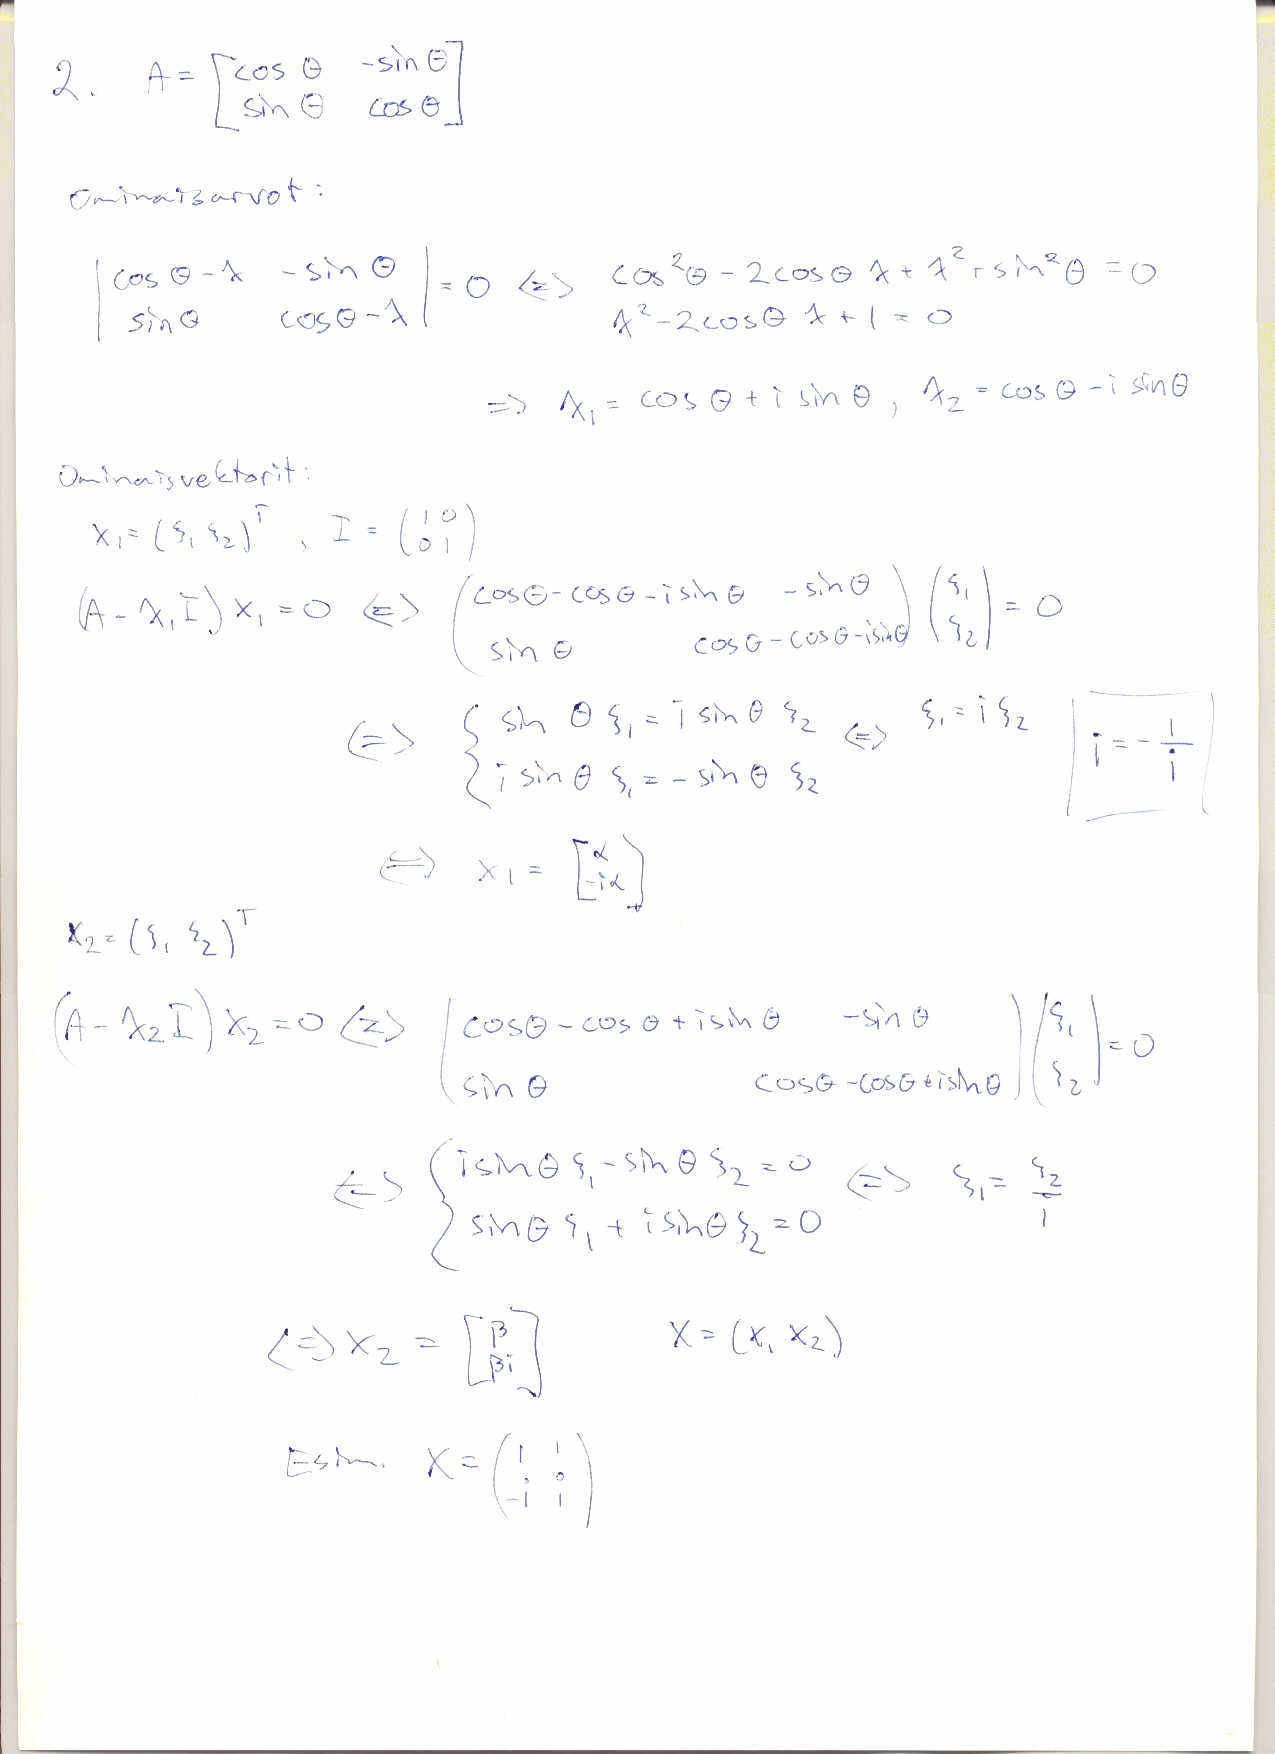 2. A = [cos θ -sin θ
sin θ cos θ]
Ominaisarvot:
|cos θ - λ -sin θ
sin θ cos θ - λ| = 0 <=> cos²θ - 2cos θ λ + λ² + sin²θ = 0
λ² - 2cos θ λ + 1 = 0
=> λ₁ = cos θ + i sin θ, λ₂ = cos θ - i sin θ
Ominaisvektorit:
x₁ = (ξ₁ ξ₂)ᵀ, I = (1 0
0 1)
(A - λ₁I) x₁ = 0 <=> (cos θ - cos θ - i sin θ -sin θ
sin θ cos θ - cos θ - i sin θ) (ξ₁
ξ₂) = 0
<=> { sin θ ξ₁ = i sin θ ξ₂
i sin θ ξ₁ = - sin θ ξ₂ <=> ξ₁ = i ξ₂
i = - 1/i
<=> x₁ = [α
-iα]
x₂ = (ξ₁ ξ₂)ᵀ
(A - λ₂I) x₂ = 0 <=> (cos θ - cos θ + i sin θ -sin θ
sin θ cos θ - cos θ + i sin θ) (ξ₁
ξ₂) = 0
<=> { i sin θ ξ₁ - sin θ ξ₂ = 0
sin θ ξ₁ + i sin θ ξ₂ = 0 <=> ξ₁ = ξ₂/i
<=> x₂ = [β
βi] X = (x₁ x₂)
Esim. X = (1 1
-i i)